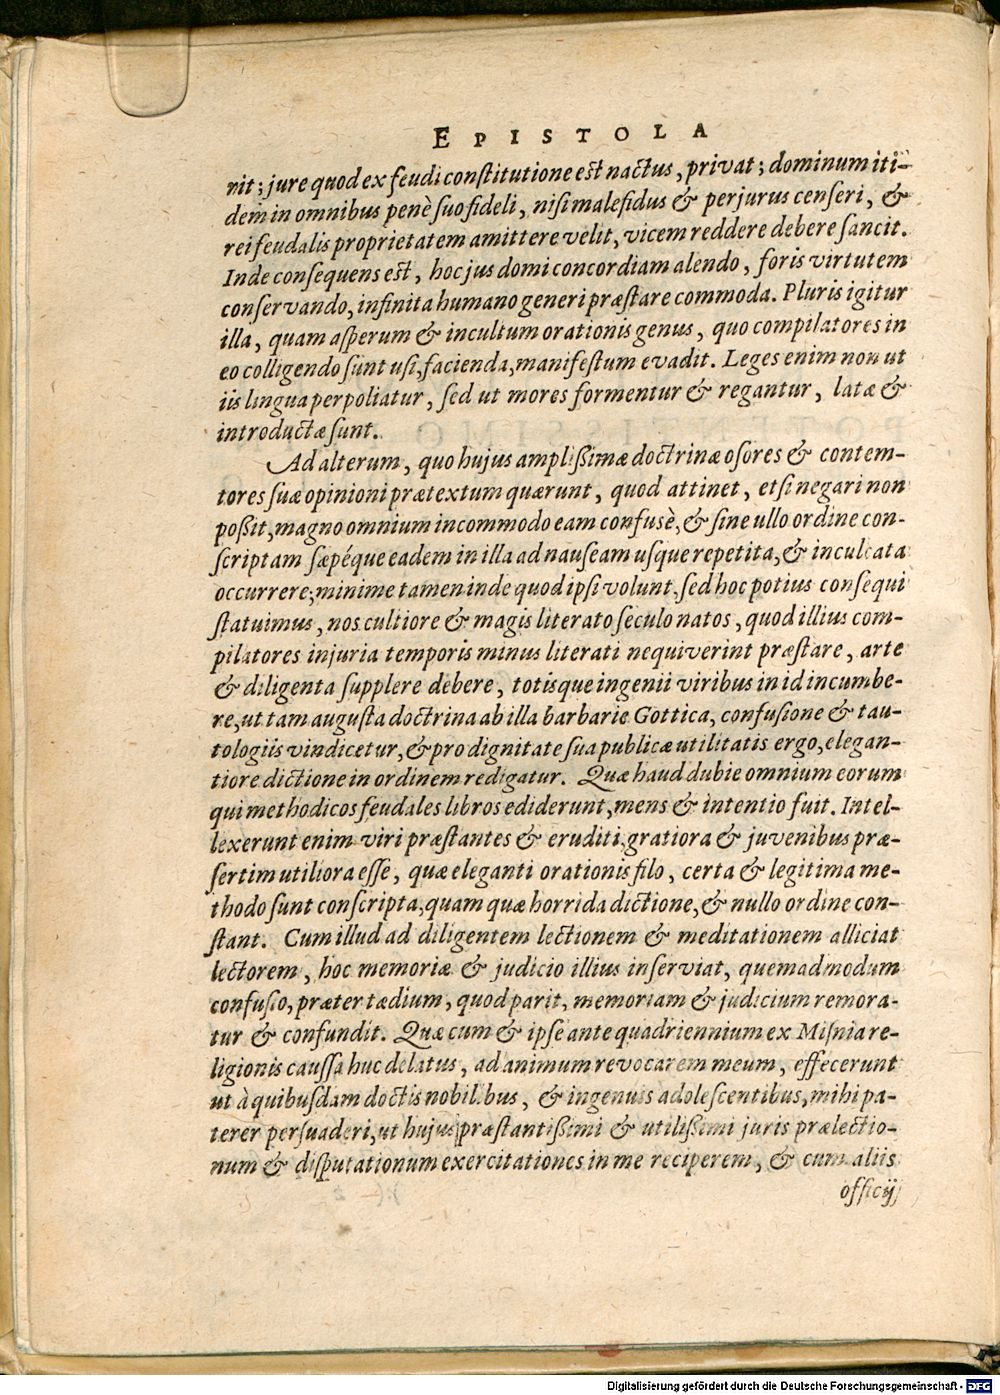 EPISTOLA
rit; jure quod ex feudi constitutione est nactus, privat; dominum iti-
dem in omnibus penè suo fideli, nisi malefidus & perjurus censeri, &
rei feudalis proprietatem amittere velit, vicem reddere debere sancit.
Inde consequens est, hoc jus domi concordiam alendo, foris virtutem
conservando, infinita humano generi præstare commoda. Pluris igitur
illa, quam asperum & incultum orationis genus, quo compilatores in
eo colligendo sunt usi, facienda, manifestum evadit. Leges enim non ut
iis lingua perpoliatur, sed ut mores formentur & regantur, latæ &
introductæ sunt.
Ad alterum, quo hujus amplißimæ doctrinæ osores & contem-
tores suæ opinioni prætextum quærunt, quod attinet, etsi negari non
poßit, magno omnium incommodo eam confusè, & sine ullo ordine con-
scriptam sæpéque eadem in illa ad nauseam usque repetita, & inculcata
occurrere; minime tamen inde quod ipsi volunt, sed hoc potius consequi
statuimus, nos cultiore & magis literato seculo natos, quod illius com-
pilatores injuria temporis minus literati nequiverint præstare, arte
& diligenta supplere debere, totisque ingenii viribus in id incumbe-
re, ut tam augusta doctrina ab illa barbarie Gottica, confusione & tau-
tologiis vindicetur, & pro dignitate sua publicæ utilitatis ergo, elegan-
tiore dictione in ordinem redigatur. Quæ haud dubie omnium eorum
qui methodicos feudales libros ediderunt, mens & intentio fuit. Intel-
lexerunt enim viri præstantes & eruditi, gratiora & juvenibus præ-
sertim utiliora esse, quæ eleganti orationis filo, certa & legitima me-
thodo sunt conscripta, quam quæ horrida dictione, & nullo ordine con-
stant. Cum illud ad diligentem lectionem & meditationem alliciat
lectorem, hoc memoriæ & judicio illius inserviat, quemadmodum
confusio, præter tædium, quod parit, memoriam & judicium remora-
tur & confundit. Quæ cum & ipse ante quadriennium ex Misnia re-
ligionis caussa huc delatus, ad animum revocarem meum, effecerunt
ut à quibusdam doctis nobilibus, & ingenuis adolescentibus, mihi pa-
terer persuaderi, ut hujus præstantißimi & utilißimi juris prælectio-
num & disputationum exercitationes in me reciperem, & cum aliis
officij
Digitalisierung gefördert durch die Deutsche Forschungsgemeinschaft - DFG